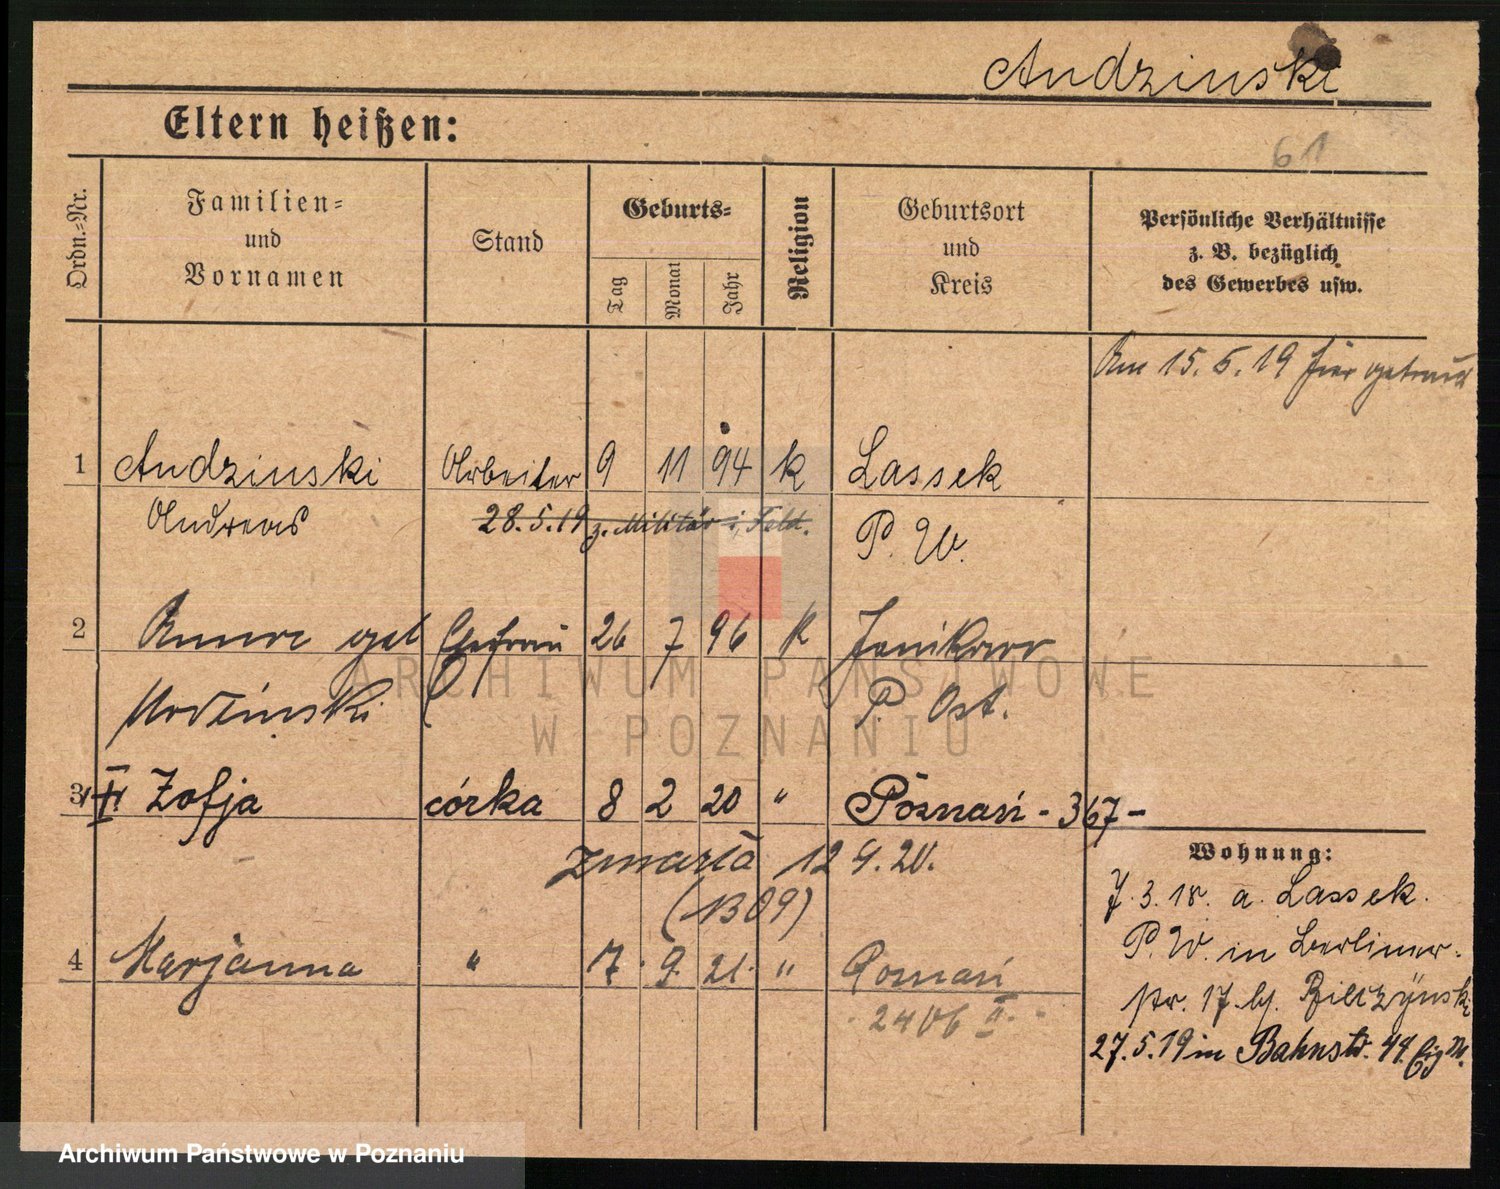 Andzinski
Eltern heißen:
61
Ordn.-Nr.
Familien-
und
Vornamen
Stand
Geburts-
Tag
Monat
Jahr
Religion
Geburtsort
und
Kreis
Persönliche Verhältnisse
z. B. bezüglich
des Gewerbes usw.
Am 15. 6. 19 hier getraut
1 Andzinski Arbeiter 9 11 94 k Lassek
Andreas 28.5.19 z. Militär i. Feld. P. W.
2 geb Ehefrau 26 7 96 k Janikowo
P. Ost.
3 Zofja córka 8 2 20 " Poznań - 367 -
zmarła 12 9. 20.
(1309)
4 Marjanna " 17. 9. 21. " Poznań
2406 II.
Wohnung:
7. 3. 18. a. Lassek.
P. W. in Berliner-
str. 17. b.
27. 5. 19 in Bahnstr. 44.
ARCHIWUM PAŃSTWOWE
W POZNANIU
Archiwum Państwowe w Poznaniu